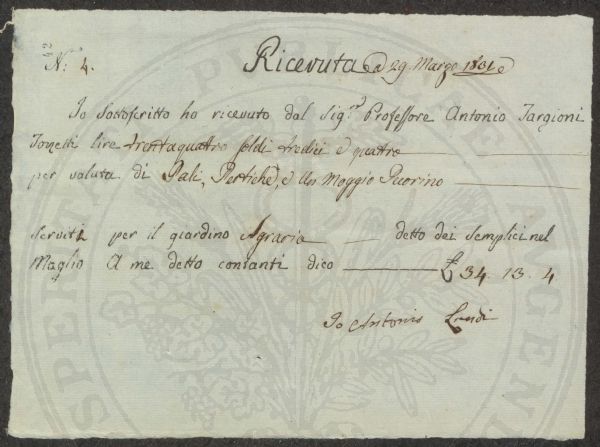 N.° 4.
Ricevuta a 29. Marzo 1831
Io sottoscritto ho ricevuto dal Sig.re Professore Antonio Targioni
Tozzetti lire trentaquattro soldi tredici e quattro
per valuta di Pali, Pertiche, e un Moggio Pecorino
serviti per il giardino Agraria detto dei Semplici nel
Maglio A me detto contanti dico £ 34. 13. 4
Io Antonio